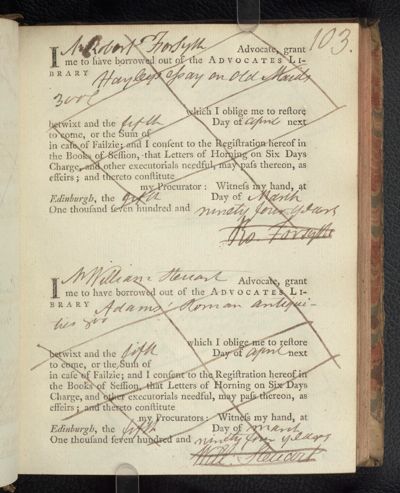 103.
I Mr Robert Forsyth Advocate, grant
me to have borrowed out of the ADVOCATES LI-
BRARY Hayley's Essay on Old Maids
3 vol
which I oblige me to reſtore
betwixt and the fifth Day of April next
to come, or the Sum of
in caſe of Failzie; and I conſent to the Regiſtration hereof in
the Books of Seſſion, that Letters of Horning on Six Days
Charge, and other executorials needful, may paſs thereon, as
effeirs; and thereto conſtitute
my Procurator: Witneſs my hand, at
Edinburgh, the fifth Day of March
One thouſand ſeven hundred and ninety four years
Ro. Forsyth
I Mr William Steuart Advocate, grant
me to have borrowed out of the ADVOCATES LI-
BRARY Adams' Roman Antiqui-
ties 8vo
which I oblige me to reſtore
betwixt and the fifth Day of April next
to come, or the Sum of
in caſe of Failzie; and I conſent to the Regiſtration hereof in
the Books of Seſſion, that Letters of Horning on Six Days
Charge, and other executorials needful, may paſs thereon, as
effeirs; and thereto conſtitute
my Procurators: Witneſs my hand, at
Edinburgh, the fifth Day of March
One thouſand ſeven hundred and ninety four years
Will. Steuart